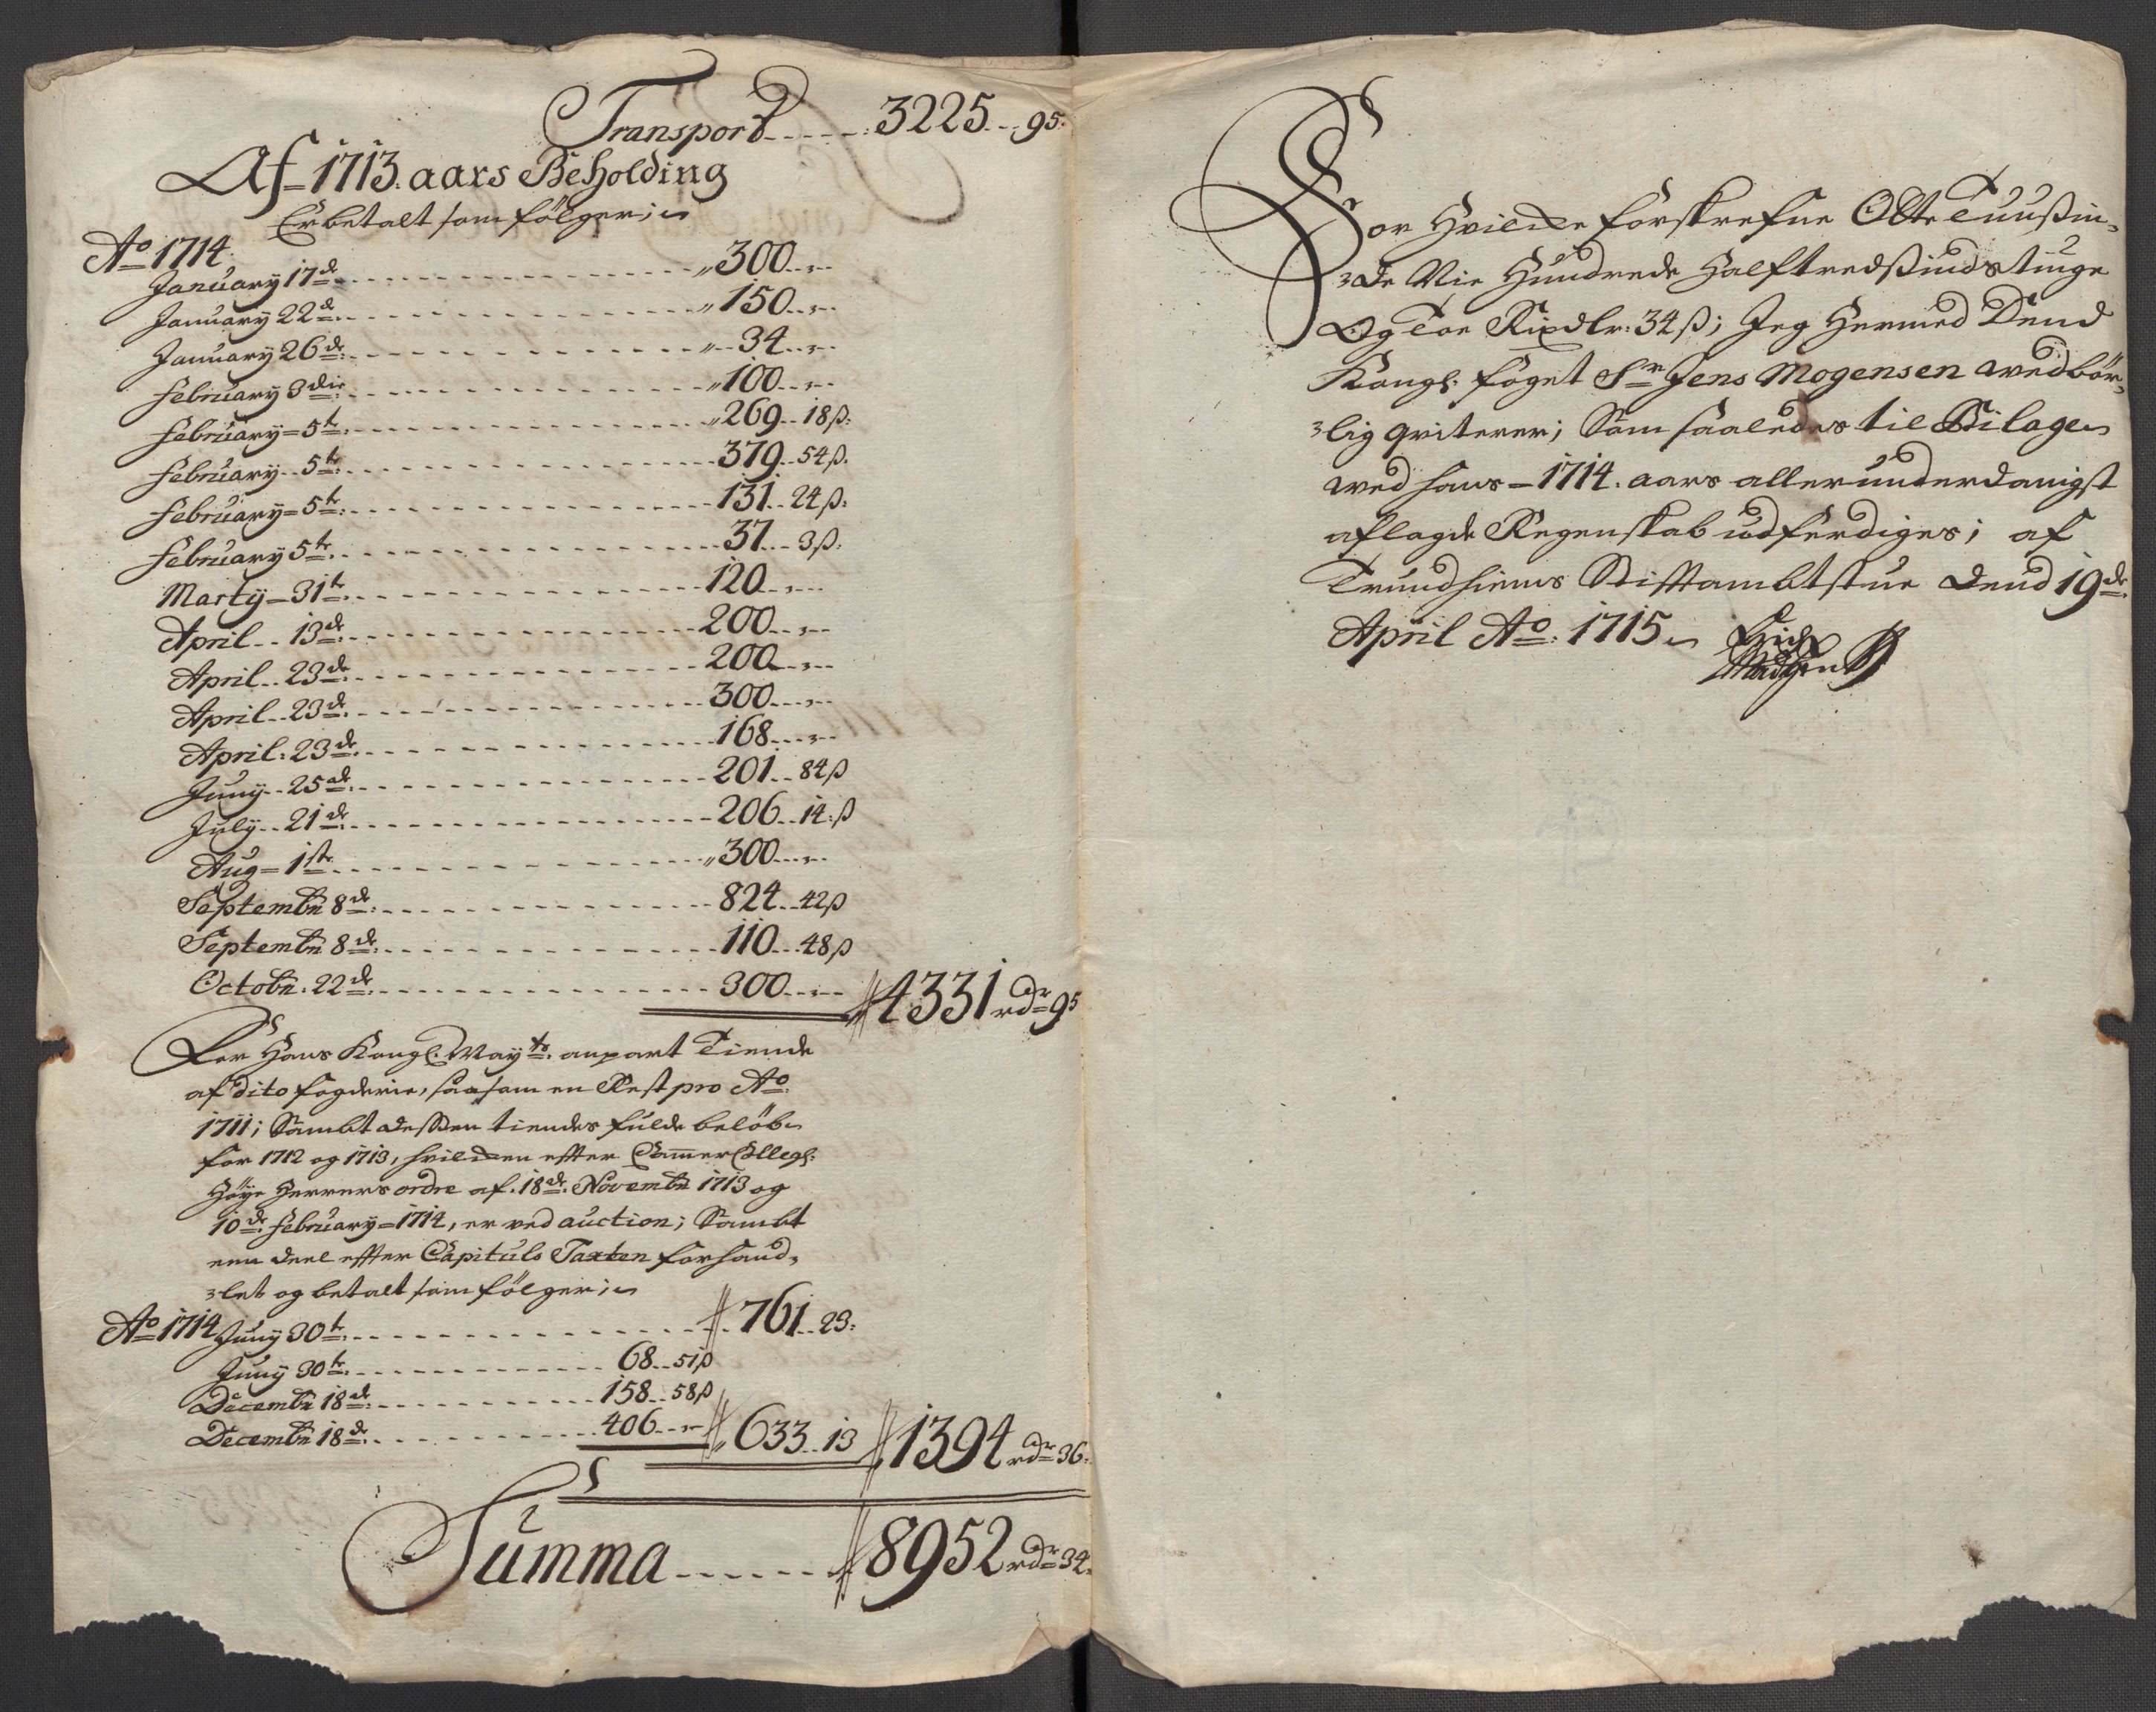 Transport - - - - - : 3225 - - 95:
Af - 1713. aars Beholding
Er betalt som fölger;
Ao 1714.
January 17de - - - " 300 - - "
January 22de - - - " 150 - - "
January 26de: - - - " 34 - - "
February 3die: - - - " 100 - - "
February = 5te: - - - " 269 - - 18 ß:
February - - 5te: - - - 379 - - 54 ß.
February = 5te: - - - 131 - - 24 ß:
February 5te: - - - 37 - - 3 ß.
Marty - 31te: - - - 120 - - "
April - - 13de: - - - 200 - - "
April - - 23de: - - - 200 - - "
April - - 23de: - - - 300 - - "
April : 23de: - - - 168 - - "
Juny - - 25de: - - - 201 - - 84 ß
July - - 21de: - - - 206 - - 14 : ß
Aug = 1ste - - - " 300 - - "
Septembr 8de: - - - 824 - - 42 ß
Septembr 8de: - - - 110 - - 48 ß
Octobr. 22de: - - - 300 - - " 4331 rdr 95
For Hans Kongl. Mayts. anpart Tiende
af dito fogderie, saasom en Rest pro Ao
1711; Sambt desSen tiendes fulde belöb
for 1712 og 1713, hvilcken effter Cammer Collegl:
Höye Herrers ordre af. 18de. Novembr 1713 og
10de. February = 1714, er ved auction; Sambt
een deel effter Capituls Taxten forhand,
let og betalt som fölger;
Ao 1714 Juny 30te: - - - 761 - - 23:
Juny 30te: - - - 68 - - 51 ß
Decembr 18de: - - - 158 - - 58 ß
Decembr 18de: - - - 406 - - " 633 - - 13 1394 rdr 36:
Summa - - - - - - 8952 rdr 34:
For Hvilcke forskrefne Otte Tuußin,
de Nie Hundrede Halftredßindstiuge
Og Toe Rixdlr: 34 ß; Jeg Hermed Dend
Kongl. foget Sr Jens Mogensen wedbör,
lig qviterer; Som saaledes til Bilage
wed hans - 1714. aars allerunderdanigst
aflagde Regenskab udferdiges; af
Trundhiems Stifftambtstue Dend 19de:
April Ao. 1715